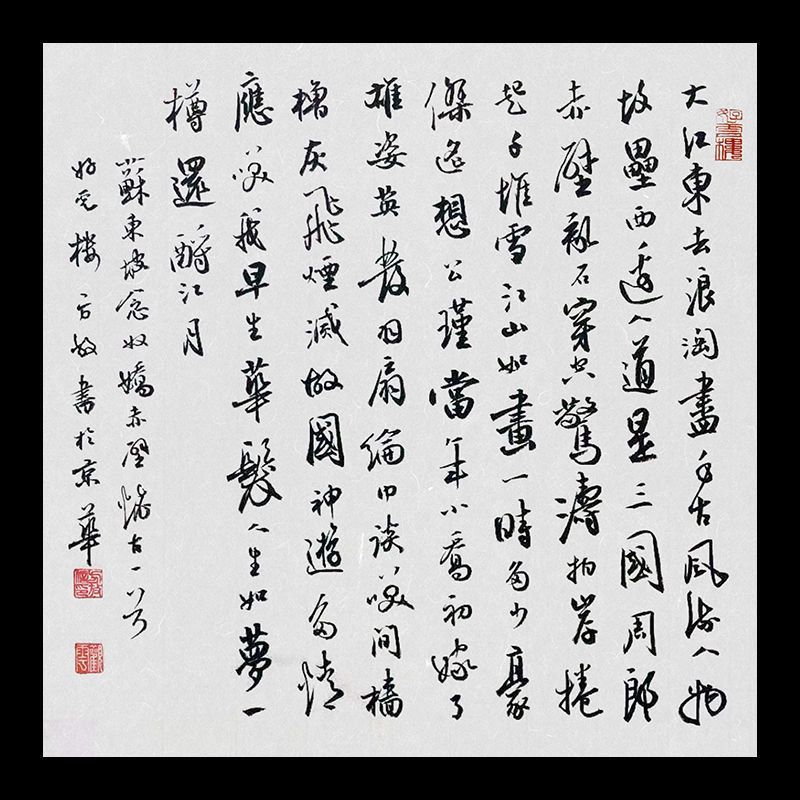 大江東去浪淘盡千古風流人物
故壘西邊人道是三國周郎
赤壁亂石穿空驚濤拍岸捲
起千堆雪江山如畫一時多少豪
傑遙想公瑾當年小喬初嫁了
雄姿英發羽扇綸巾談笑間檣
櫓灰飛煙滅故國神遊多情
應笑我早生華髮人生如夢一
樽還酹江月
蘇東坡念奴嬌赤壁懷古一首
好雲樓方書於京華